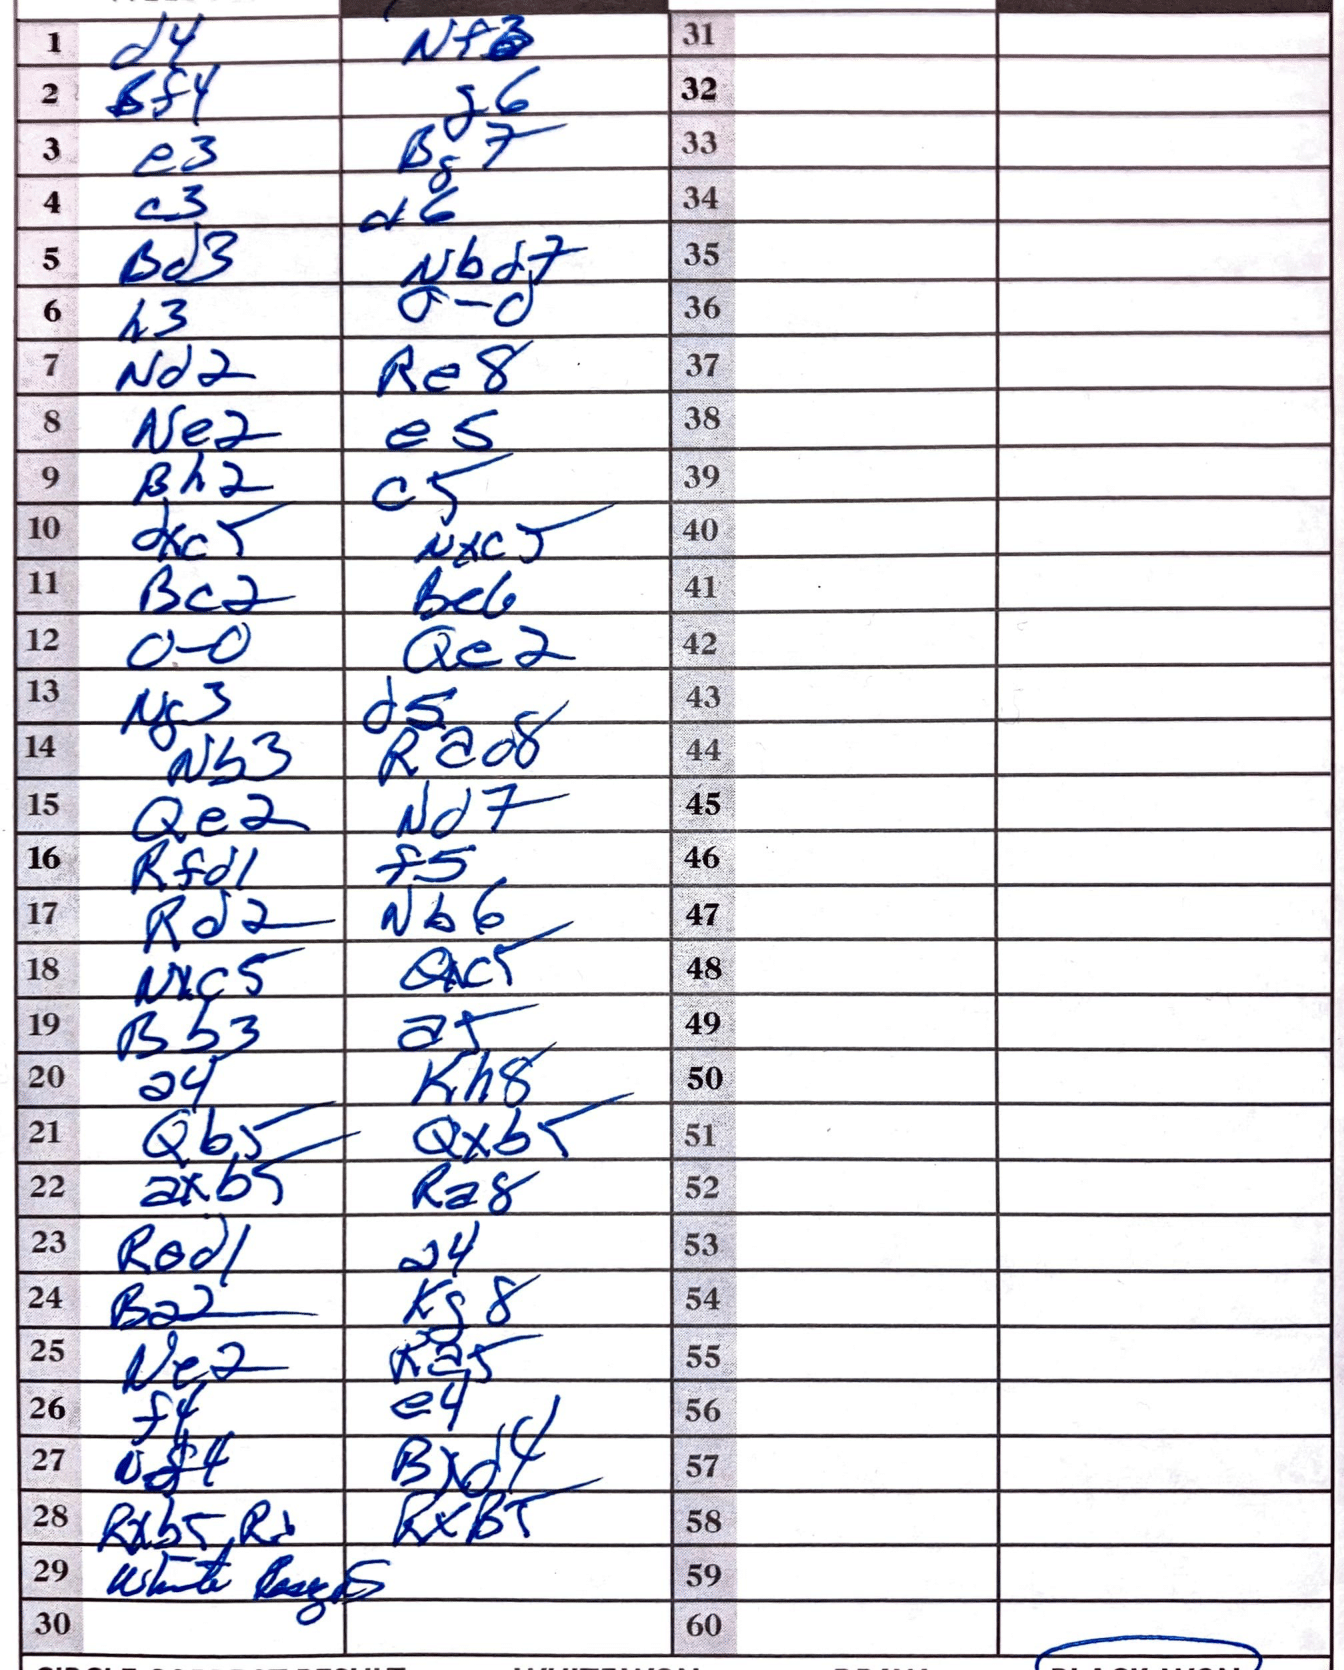 1 d4 Nf6 31
2 Bf4 g6 32
3 e3 Bg7 33
4 c3 d6 34
5 Bd3 Nbd7 35
6 h3 0-0 36
7 Nd2 Re8 37
8 Ne2 e5 38
9 Bh2 c5 39
10 dxc5 Nxc5 40
11 Bc2 Be6 41
12 0-0 Qe2 42
13 Ng3 d5 43
14 Nb3 Rad8 44
15 Qe2 Nd7 45
16 Rfd1 f5 46
17 Rd2 Nb6 47
18 Nxc5 Qxc5 48
19 Bb3 a5 49
20 a4 Kh8 50
21 Qb5 Qxb5 51
22 axb5 Ra8 52
23 Rad1 a4 53
24 Ba2 Kg8 54
25 Ne2 Ra5 55
26 f4 e4 56
27 Nd4 Bxd4 57
28 Rxb5 RxB5 58
29 White Resigns 59
30 60